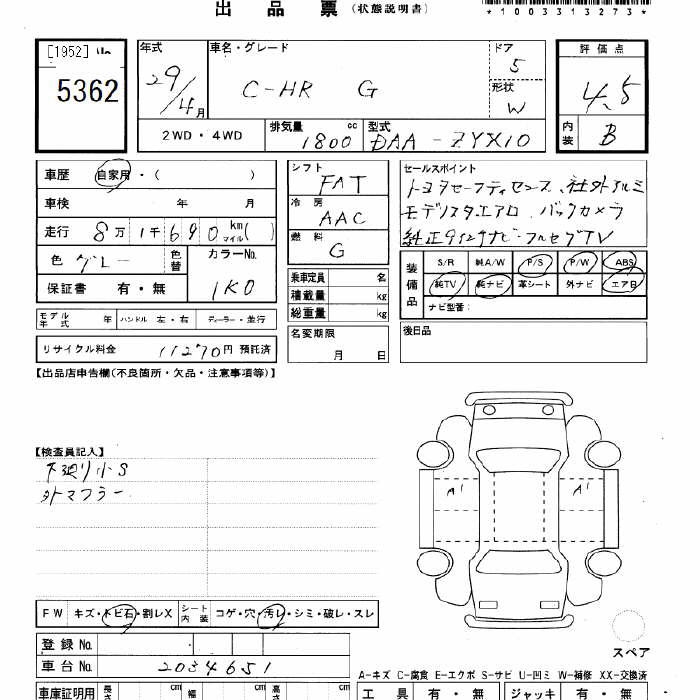 出品票（状態説明書）
*1003313273*
[1952]
5362
年式 29/4月
車名・グレード C-HR G
ドア 5
形状 W
評価点 4.5
内装 B
2WD・4WD
排気量 1800cc
型式 DAA-ZYX10
車歴 自家用・( )
車検 年 月
走行 8万1千690km マイル( )
色 グレー
色替
カラーNo. 1K0
保証書 有・無
シフト FAT
冷房 AAC
燃料 G
乗車定員 名
積載量 kg
総重量 kg
セールスポイント
トヨタセーフティセンス、社外アルミ
モデリスタエアロ、バックカメラ
純正9インチナビ-フルセグTV
装備品
S/R 純A/W P/S P/W ABS
純TV 純ナビ 革シート 外ナビ エアB
ナビ型番：
モデル年式 年 ハンドル 左・右 ディーラー・並行
名変期限 月 日
後日品
リサイクル料金 11270円 預託済
【出品店申告欄(不良箇所・欠品・注意事項等)】
【検査員記入】
下廻り小S
外マフラー
A1 A1
FW キズ・トビ石・割レX
シート内装 コゲ・穴・汚レ・シミ・破レ・スレ
スペア
登録No.
車台No. 2034651
A-キズ C-腐食 E-エクボ S-サビ U-凹ミ W-補修 XX-交換済
車庫証明用 長さ cm 幅 cm 高さ cm
工具 有・無 ジャッキ 有・無